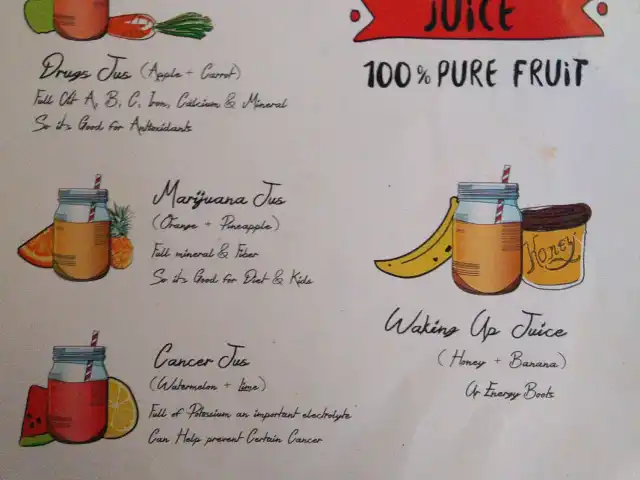 JUICE
100% PURE FRUiT
Drugs Jus (Apple + Carrot)
Full Of A, B, C, Iron, Calcium & Mineral
So it's Good for Antioxidants
Marijuana Jus
(Orange + Pineapple)
Full mineral & Fiber
So it's Good for Diet & Kids
Cancer Jus
(Watermelon + Lime)
Full of Potassium an important electrolyte
Can Help prevent Certain Cancer
Honey
Waking Up Juice
(Honey + Banana)
Ur Energy Boots